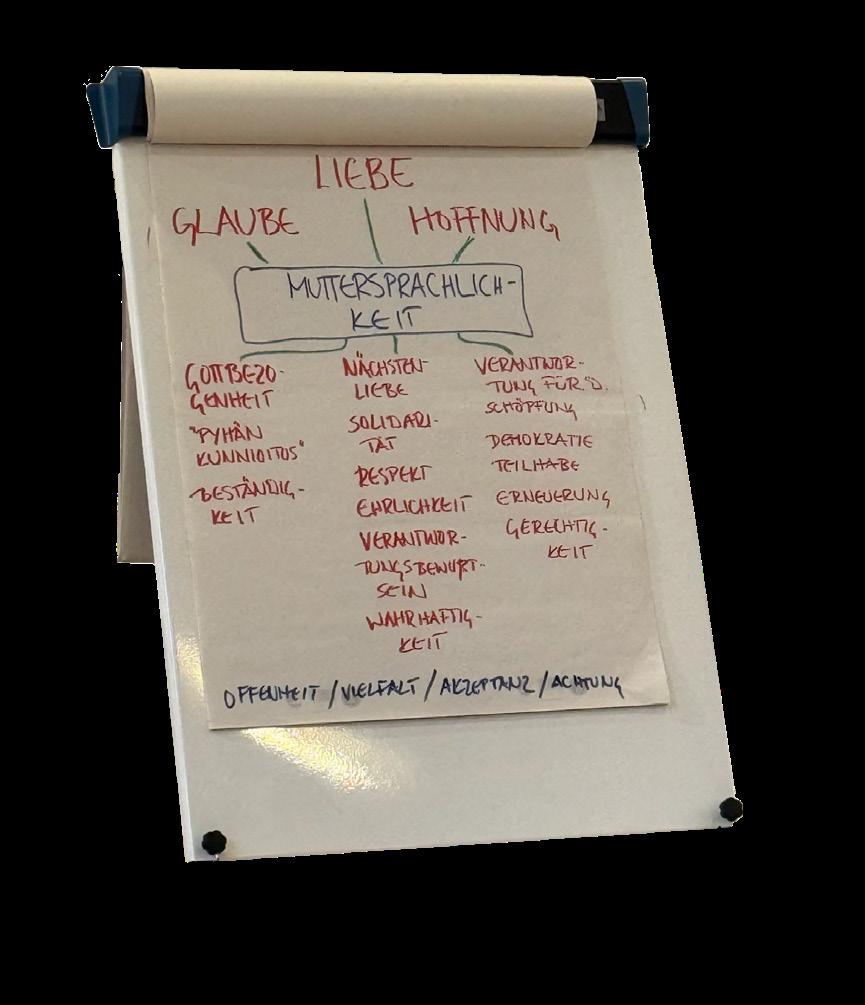 LIEBE
GLAUBE HOFFNUNG
MUTTERSPRACHLICH-
KEIT
GOTTBEZO-
GENHEIT
"PYHÄN
KUNNIOITUS"
BESTÄNDIG-
KEIT
NÄCHSTEN-
LIEBE
SOLIDARI-
TÄT
RESPEKT
EHRLICHKEIT
VERANTWOR-
TUNGSBEWUßT-
SEIN
WAHRHAFTIG-
KEIT
VERANTWOR-
TUNG FÜR D.
SCHÖPFUNG
DEMOKRATIE
TEILHABE
ERNEUERUNG
GERECHTIG-
KEIT
OFFENHEIT / VIELFALT / AKZEPTANZ / ACHTUNG